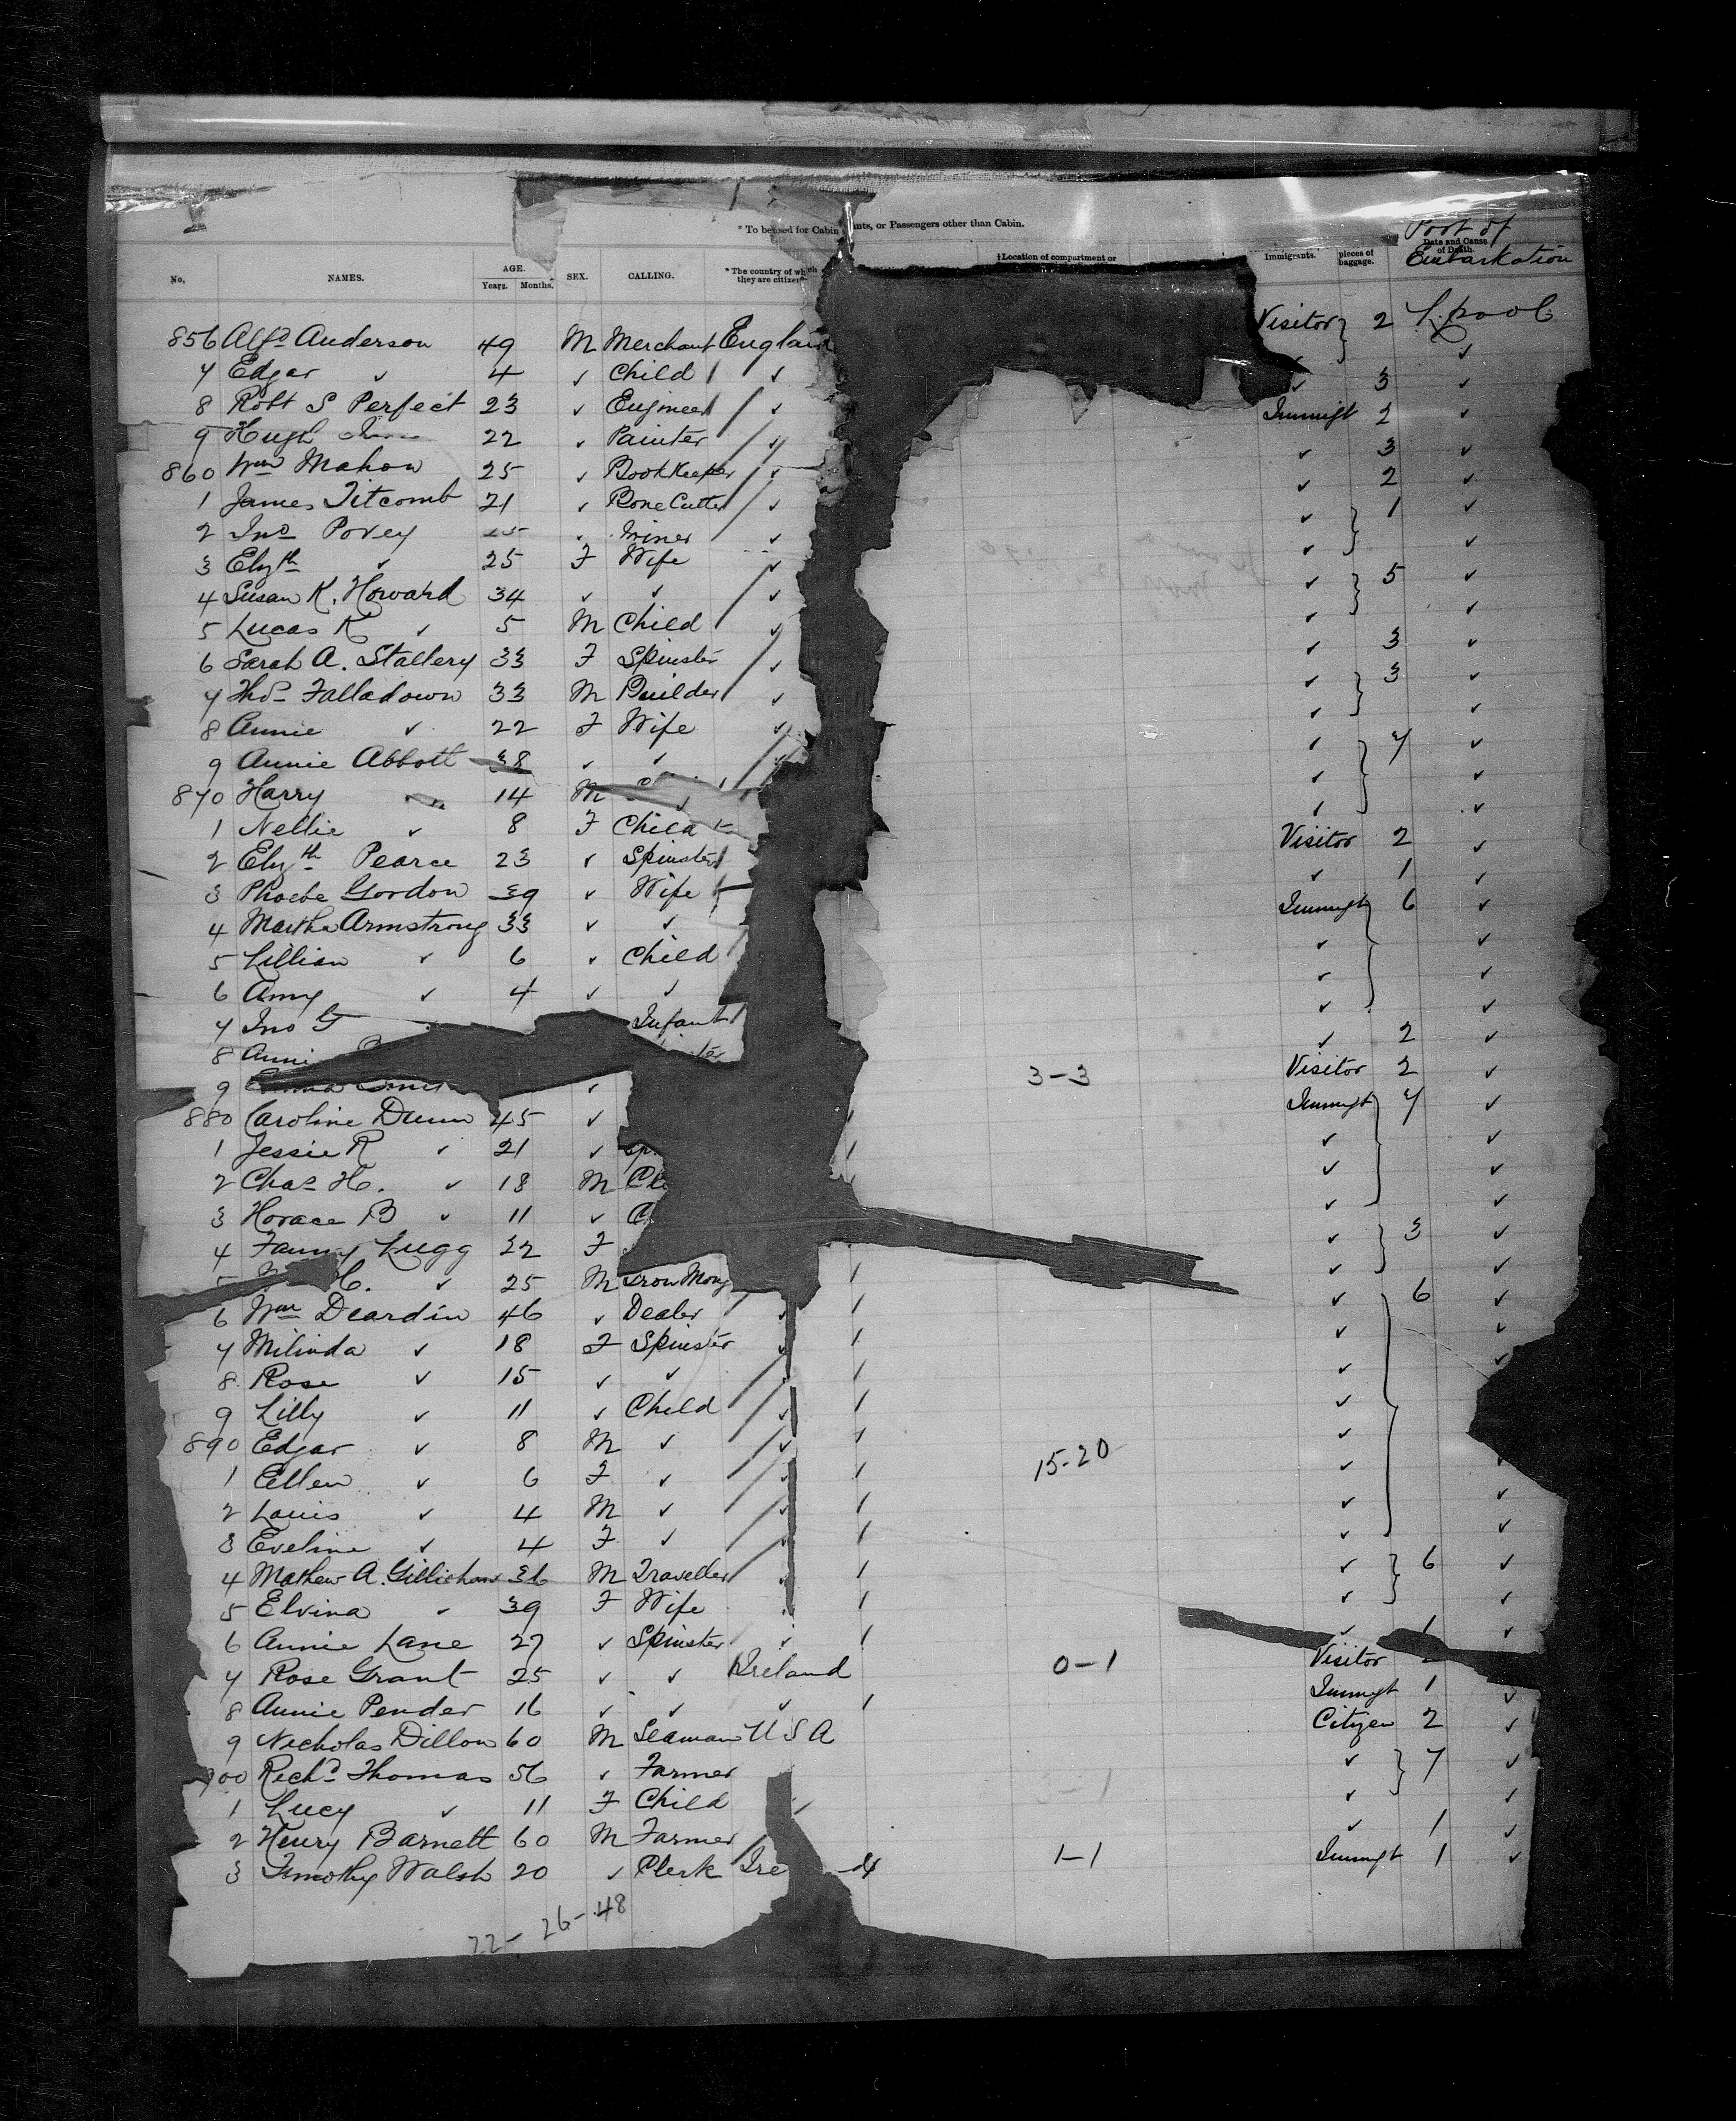 * To be used for Cabin nts, or Passengers other than Cabin.
Port of Embarkation
No. NAMES. AGE. Years. Months. SEX. CALLING. * The country of which they are citizens †Location of compartment or Immigrants. pieces of baggage. Date and Cause of Death.
856 Alfd Anderson 49 M Merchant England Visitor 2 L.pool
7 Edgar ✓ 4 ✓ Child ✓ ✓ ✓
8 Robt S Perfect 23 ✓ Engineer ✓ ✓ 3 ✓
9 Hugh 22 ✓ Painter ✓ Immigt 2 ✓
860 Wm Mahon 25 ✓ Bookkeeper ✓ ✓ 3 ✓
1 James Titcomb 21 ✓ Bone Cutter ✓ ✓ 2 ✓
2 Jno Povey ✓ Miner ✓ ✓ 1 ✓
3 Elyth ✓ 25 F Wife ✓ ✓ ✓
4 Susan K. Howard 34 ✓ ✓ ✓ ✓ 5 ✓
5 Lucas K ✓ 5 M Child ✓ ✓ ✓
6 Sarah A. Stallery 33 F Spinster ✓ ✓ 3 ✓
7 Thos Falladown 33 M Builder ✓ ✓ 3 ✓
8 Annie ✓ 22 F Wife ✓ ✓ ✓
9 Annie Abbott 38 ✓ ✓ ✓ ✓ 7 ✓
870 Harry 14 M ✓ ✓
1 Nellie ✓ 8 F Child ✓ ✓
2 Elyth Pearce 23 ✓ Spinster Visitor 2 ✓
3 Phoebe Gordon 39 ✓ Wife ✓ 1 ✓
4 Martha Armstrong 33 ✓ ✓ Immigt 6 ✓
5 Lillian ✓ 6 ✓ Child ✓ ✓
6 Amy ✓ 4 ✓ ✓ ✓ ✓
7 Jno G Infant ✓ ✓
8 Anni ✓ 2 ✓
9 ✓ 3-3 Visitor 2 ✓
880 Caroline Dunn 45 ✓ Immigt 7 ✓
1 Jessie R ✓ 21 ✓ Sp ✓ ✓
2 Chas H. ✓ 18 M Cl ✓ ✓
3 Horace B ✓ 11 ✓ C ✓ ✓
4 Fanny Lugg 22 F ✓ 3 ✓
5 H. ✓ 25 M Iron Mong ✓ ✓
6 Wm Deardin 46 ✓ Dealer ✓ ✓ 6 ✓
7 Milinda ✓ 18 F Spinster ✓ ✓ ✓
8 Rose ✓ 15 ✓ ✓ ✓ ✓ ✓
9 Lilly ✓ 11 ✓ Child ✓ ✓
890 Edgar ✓ 8 M ✓ ✓ 15-20 ✓
1 Ellen ✓ 6 F ✓ ✓ ✓
2 Louis ✓ 4 M ✓ ✓ ✓ ✓
3 Eveline ✓ 4 F ✓ ✓ ✓ ✓
4 Mathew A. Gillicham 36 M Traveller ✓ 6 ✓
5 Elvina ✓ 39 F Wife ✓ ✓
6 Annie Lane 27 ✓ Spinster ✓ 1 ✓
7 Rose Grant 25 ✓ ✓ Ireland 0-1 Visitor 2
8 Annie Pender 16 ✓ ✓ ✓ Immigt 1 ✓
9 Nicholas Dillon 60 M Seaman U S A Citizen 2 ✓
900 Richd Thomas 56 ✓ Farmer ✓ 7 ✓
1 Lucy ✓ 11 F Child ✓ ✓
2 Henry Barnett 60 M Farmer ✓ 1 ✓
3 Timothy Walsh 20 ✓ Clerk Ire 1-1 Immigt 1 ✓
22- 26-48